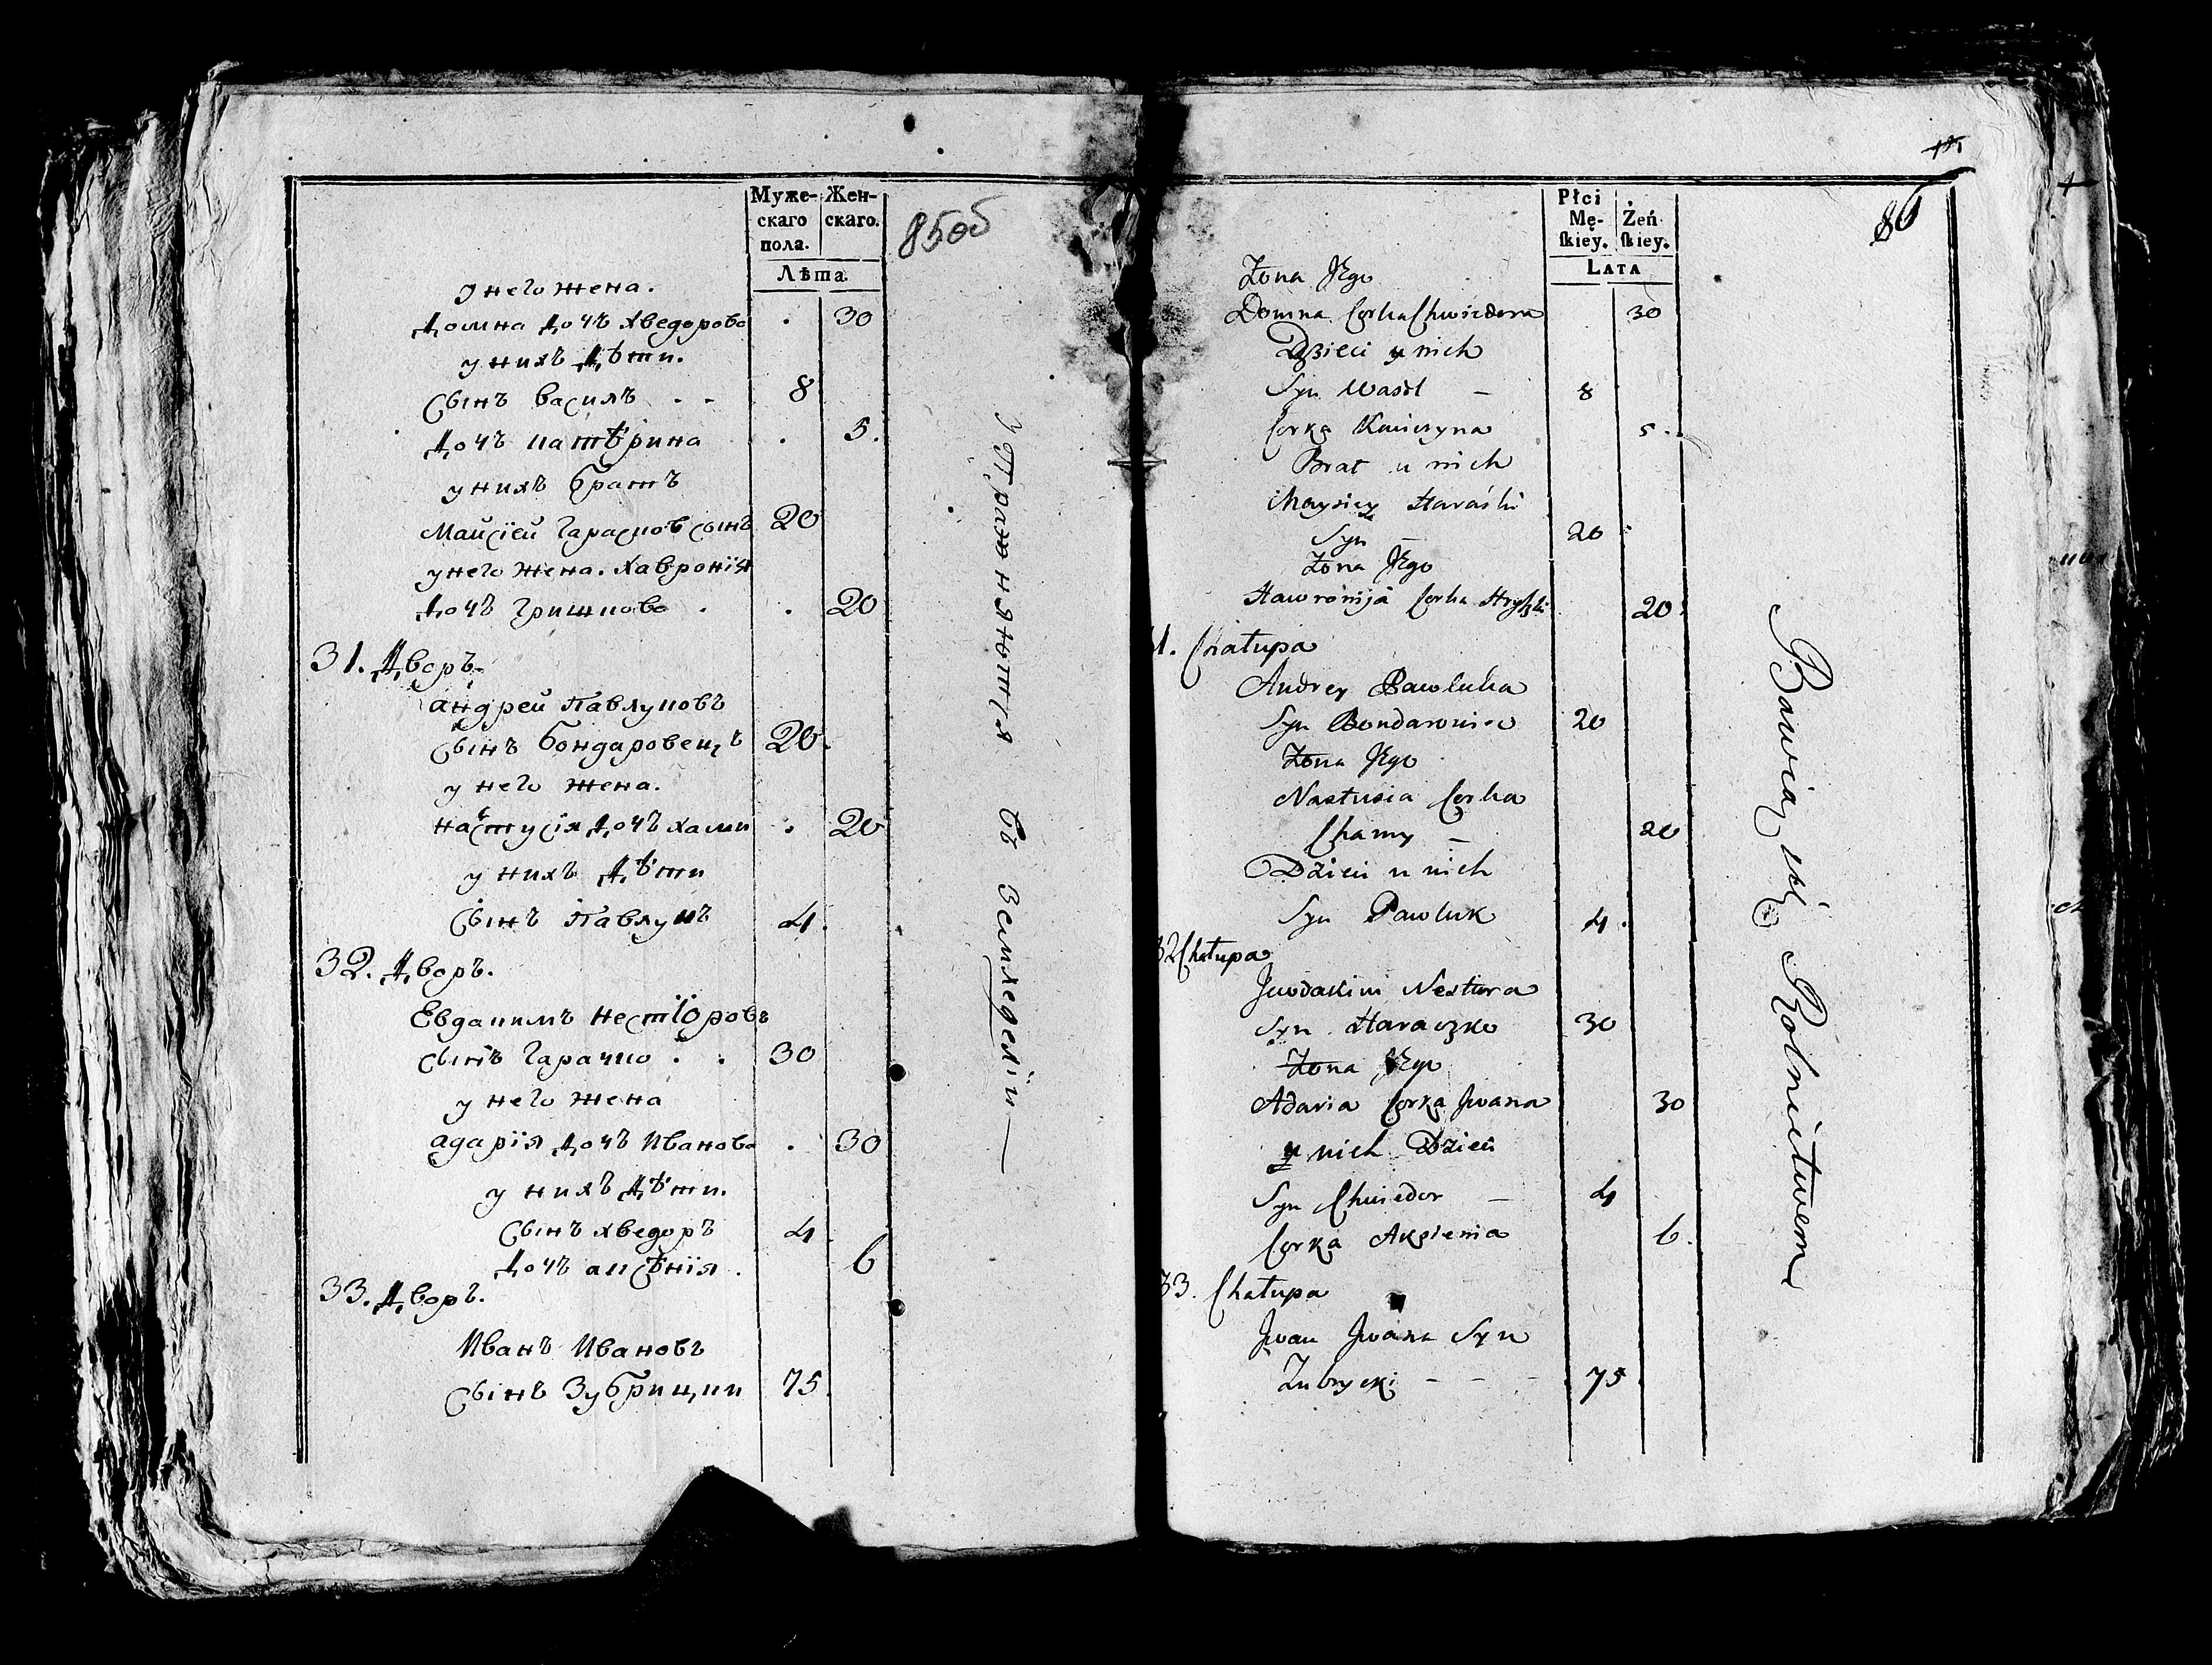 Муже-
скаго
пола.
Жен-
скаго.
Лѣта.
85об
у него жена.
домна дочъ хведорова . 30
у нихъ дѣти.
сынъ василъ . . 8
дочъ катѣрина . 5.
у нихъ братъ
Майсѣй Гарасковъ сынъ 20
у него жена. хавронія
дочъ Гришкова . . 20
31. дворъ.
андрей Павлуковъ
сынъ бондаровецъ 20.
у него жена.
настусія дочъ хами . 20
у нихъ дѣти
сынъ Павлукъ 4.
32. дворъ.
Евдакимъ нестіоровъ
сынъ Гарачко . . 30
у него жена
адарія дочъ Иванова . 30
у нихъ дѣти.
сынъ хведоръ 4
дочъ аксѣнія . 6
33. дворъ.
Иванъ Ивановъ
сынъ Зубрицки 75
упражняются въ Земледеліи
Płci
Mę-
skiey.
Żeń
skiey.
Lata
86
Żona Jego
Domna Corka Chwiedora 30
Dzieci y nich
Syn Wasil – 8
Corka Kacieryna 5.
Brat u nich
Maysiey Haraśki
Syn – 20
Żona Jego
Hawronija Corka Hryszki 20.
1. Chałupa
Andrey Pawluka
Syn Bondarowiec 20
Żona Jego
Nastusia Corka
Chamy – 20
Dzieci u nich
Syn Pawluk 4.
32 Chałupa
Jewdakim Nestora
Syn Haraczko 30
Żona Jego
Adaria Corka Jwana 30
y nich Dzieci
Syn Chwiedor – 4
Corka Aksienia 6.
33. Chałupa
Jwan Jwana Syn
Zubrycki – – – 75
Bawią się Rolnictwem